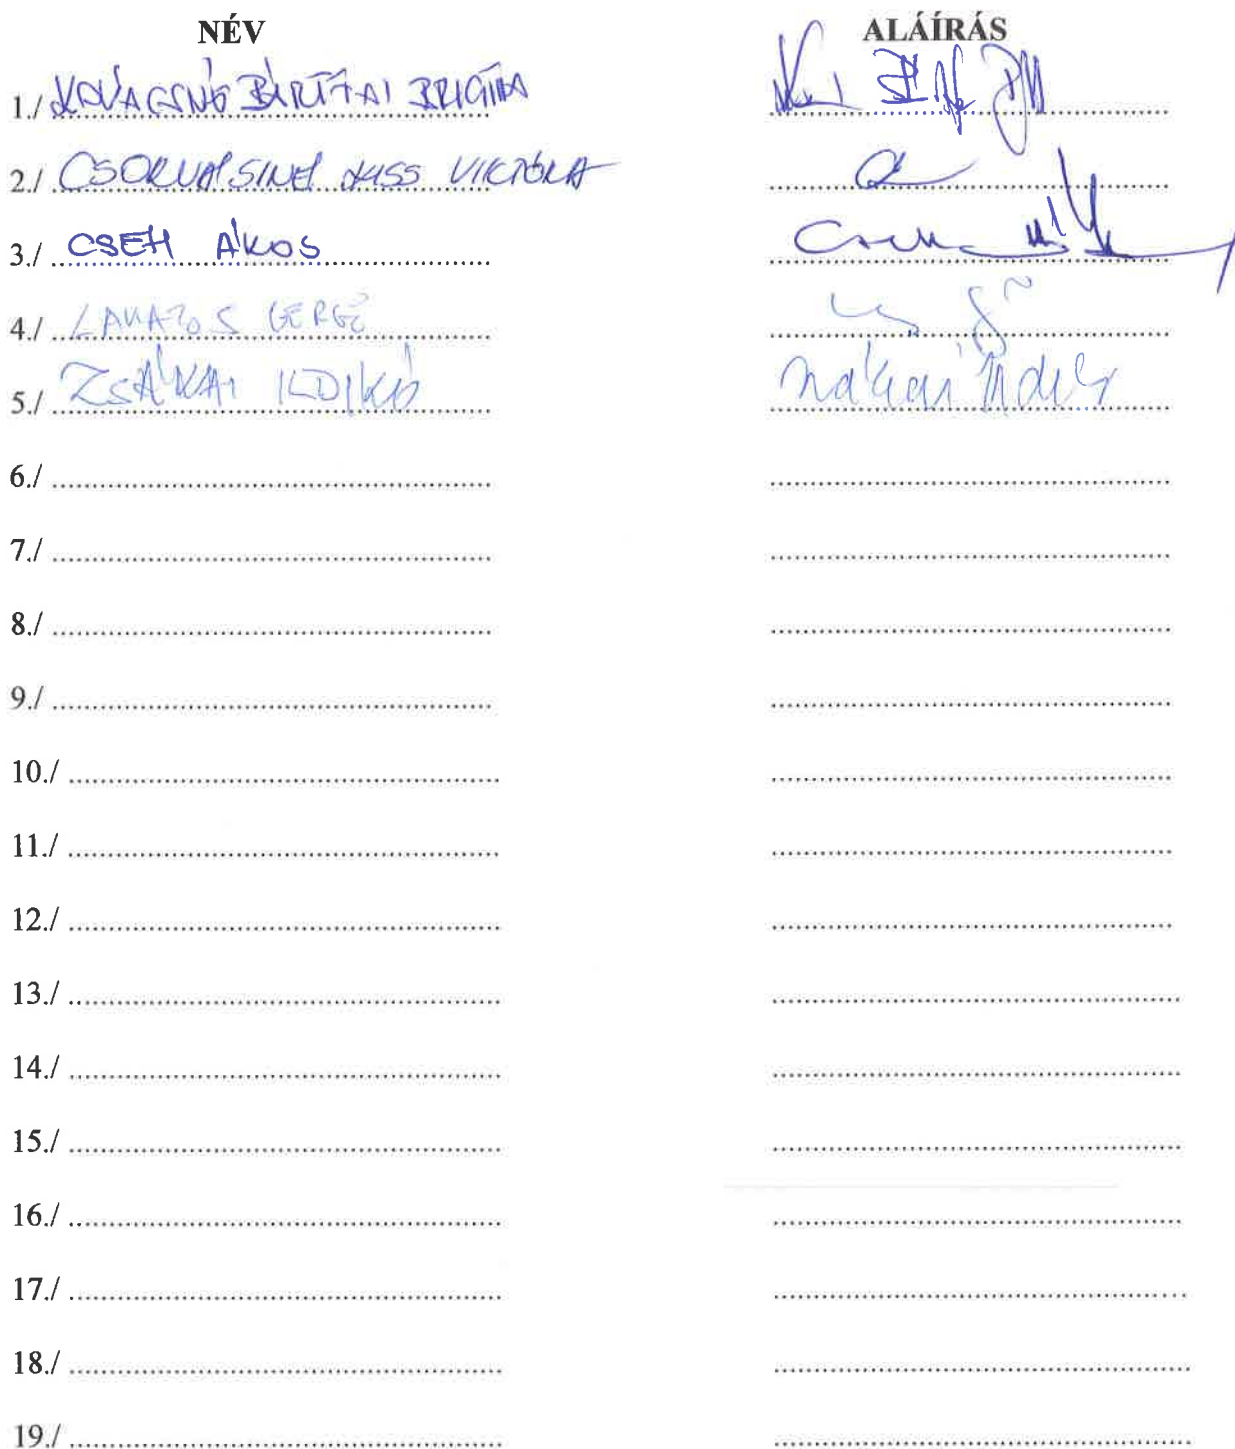 NÉV ALÁÍRÁS
1./ KOVÁCSNÉ BÁRTFAI BRIGITTA
2./ CSORVÁSINÉ KISS VIKTÓRIA
3./ CSEH ÁKOS
4./ LAKATOS GERGŐ
5./ ZSÁKAI ILDIKÓ
6./
7./
8./
9./
10./
11./
12./
13./
14./
15./
16./
17./
18./
19./